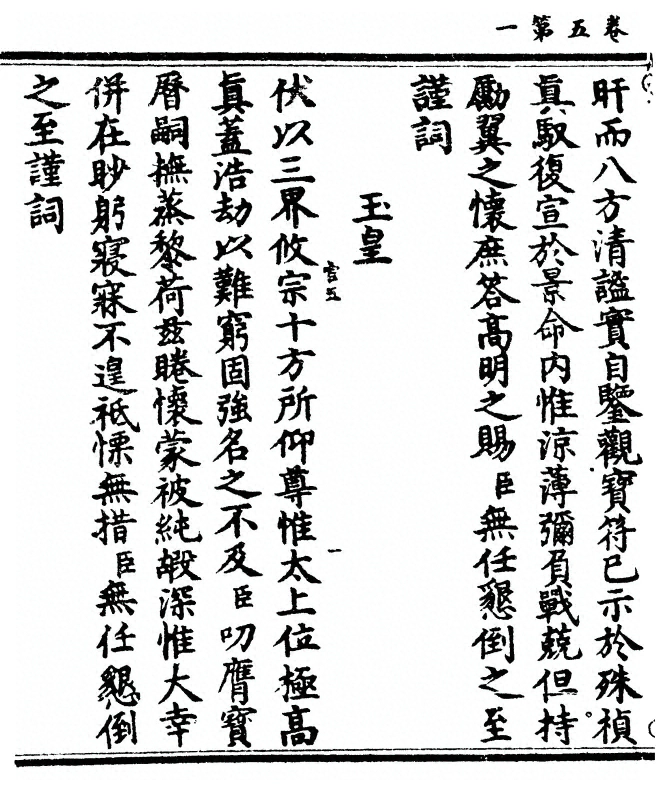 卷五第一
旰而八方清謐實自鑒觀寶符已示於殊禎
眞馭復宣於景命內惟涼薄彌負戰兢但持
勵翼之懷庶答高明之賜臣無任懇倒之至
謹詞
玉皇
伏以三界攸宗十方所仰尊惟太上位極高
眞蓋浩劫以難窮固強名之不及臣叨膺寶
曆嗣撫蒸黎荷兹睠懷蒙被純嘏深惟大幸
併在眇躬寢寐不遑祗慄無措臣無任懇倒
之至謹詞